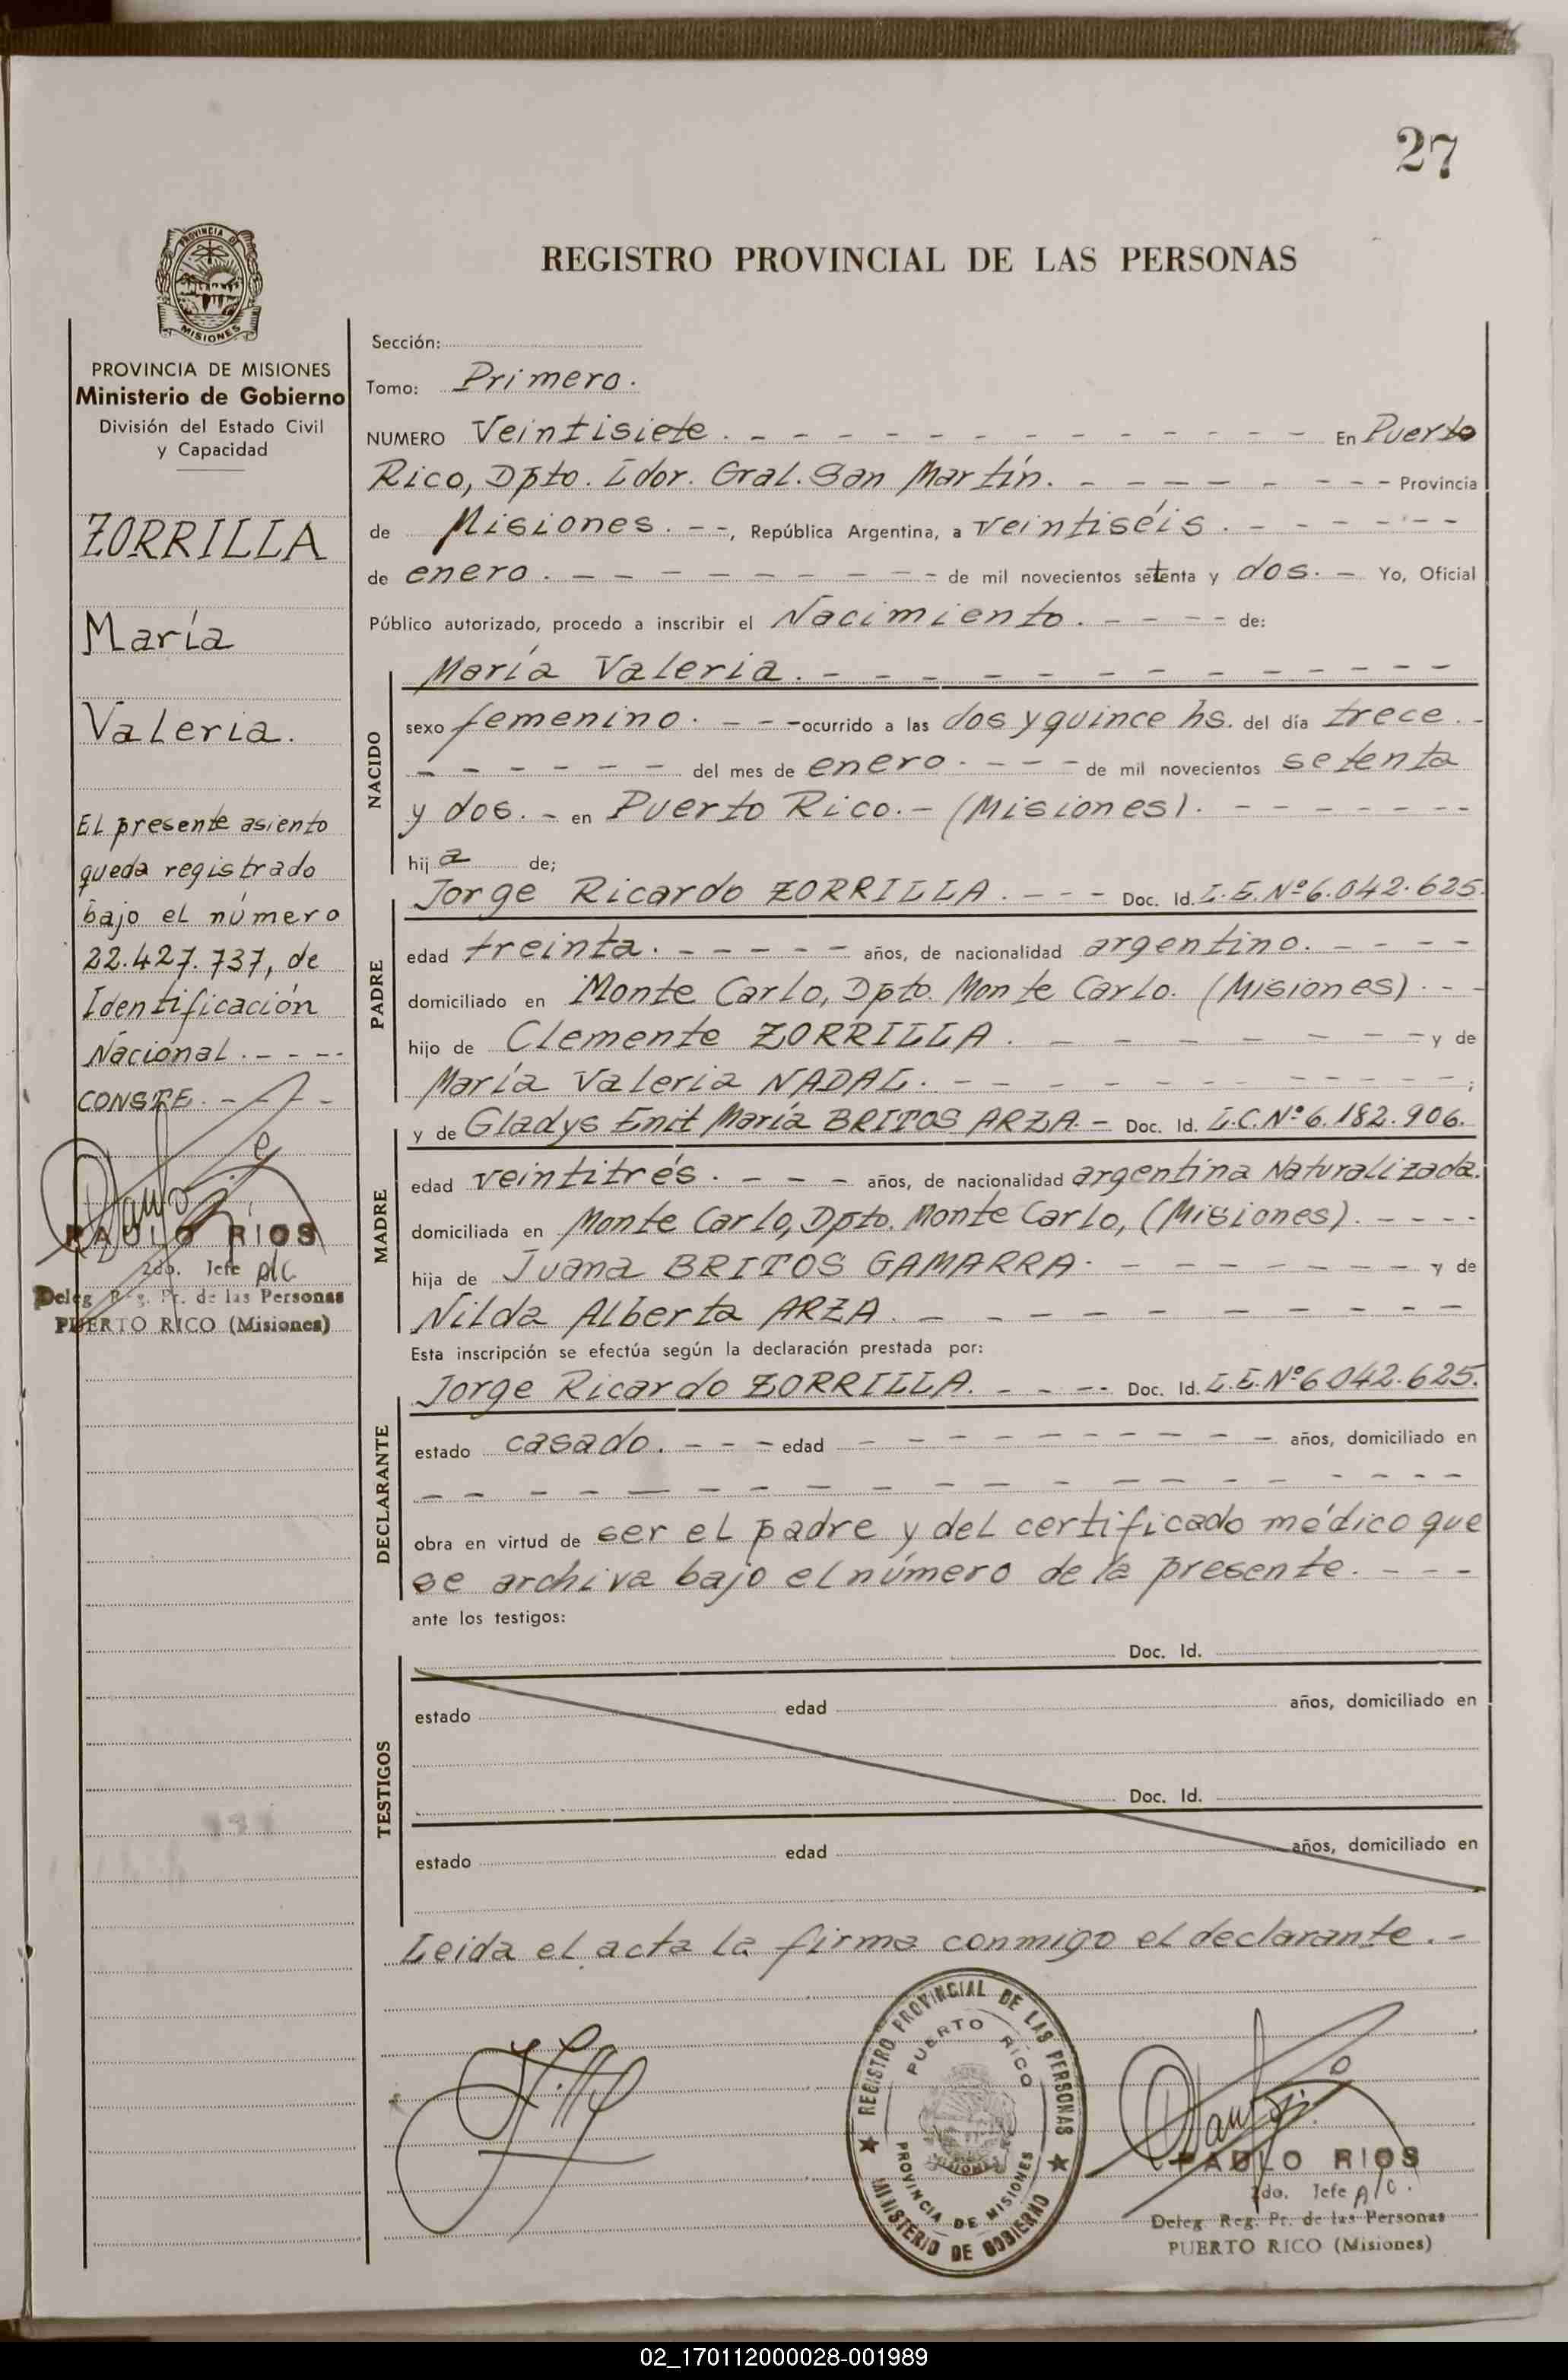 27
PROVINCIA DE
MISIONES
REGISTRO PROVINCIAL DE LAS PERSONAS
PROVINCIA DE MISIONES
Ministerio de Gobierno
División del Estado Civil
y Capacidad
ZORRILLA
María
Valeria.
El presente asiento
queda registrado
bajo el número
22.427.737, de
Identificación
Nacional. - - - -
CONSTE. - - - -
PABLO RIOS
2do. Jefe A/C
Deleg. Reg. Pr. de las Personas
PUERTO RICO (Misiones)
Sección:
Tomo: Primero.
NUMERO Veintisiete. - - - - - - - - - - - - En Puerto
Rico, Dpto. Ldor. Gral. San Martín. - - - - - - - - Provincia
de Misiones. - -, República Argentina, a veintiséis. - - - - - -
de enero. - - - - - - - - - de mil novecientos setenta y dos. - Yo, Oficial
Público autorizado, procedo a inscribir el Nacimiento. - - - - de:
NACIDO
María Valeria. - - - - - - - - - - - -
sexo femenino. - - - ocurrido a las dos y quince hs. del día trece. -
- - - - - - del mes de enero - - - - de mil novecientos setenta
y dos. - en Puerto Rico. - (Misiones). - - - - - - -
hija de;
PADRE
Jorge Ricardo ZORRILLA. - - - Doc. Id. L.E. Nº 6.042.625.
edad treinta. - - - - - - años, de nacionalidad argentino. - - - -
domiciliado en Monte Carlo, Dpto. Monte Carlo. (Misiones). - -
hijo de Clemente ZORRILLA. - - - - - - - - y de
María Valeria NADAL. - - - - - - - - - - - ;
MADRE
y de Gladys Enit María BRITOS ARZA. - Doc. Id. L.C. Nº 6.182.906.
edad veintitrés. - - - - años, de nacionalidad argentina Naturalizada.
domiciliada en Monte Carlo, Dpto. Monte Carlo, (Misiones). - - - -
hija de Juana BRITOS GAMARRA. - - - - - - - - y de
Nilda Alberta ARZA. - - - - - - - - - -
Esta inscripción se efectúa según la declaración prestada por:
DECLARANTE
Jorge Ricardo ZORRILLA. - - - - Doc. Id. L.E. Nº 6042.625.
estado casado. - - - edad - - - - - - - - - - años, domiciliado en
- - - - - - - - - - - - - - - - - - - -
obra en virtud de ser el padre y del certificado médico que
se archiva bajo el número de la presente. - - -
ante los testigos:
TESTIGOS
Doc. Id.
estado edad años, domiciliado en
Doc. Id.
estado edad años, domiciliado en
Leida el acta la firma conmigo el declarante. -
REGISTRO PROVINCIAL DE LAS PERSONAS
PUERTO RICO
PROVINCIA DE MISIONES
MINISTERIO DE GOBIERNO
PABLO RIOS
2do. Jefe A/C.
Deleg. Reg. Pr. de las Personas
PUERTO RICO (Misiones)
02_170112000028-001989